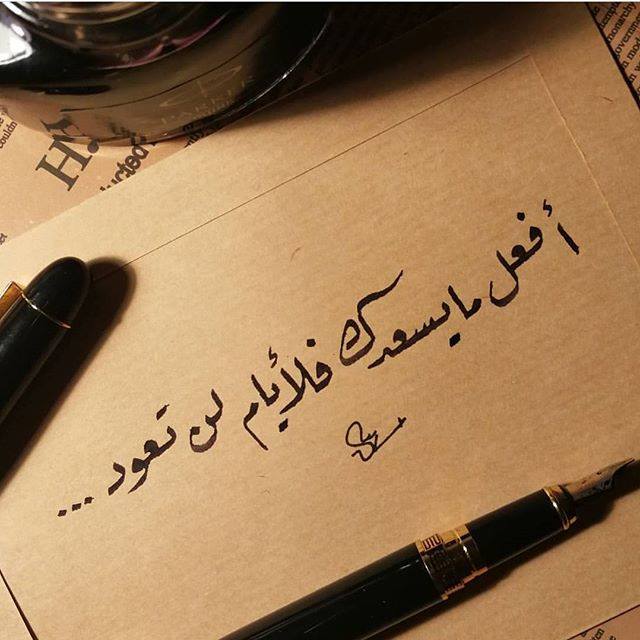 أفعل ما يسعدك فلأيام لن تعود ...